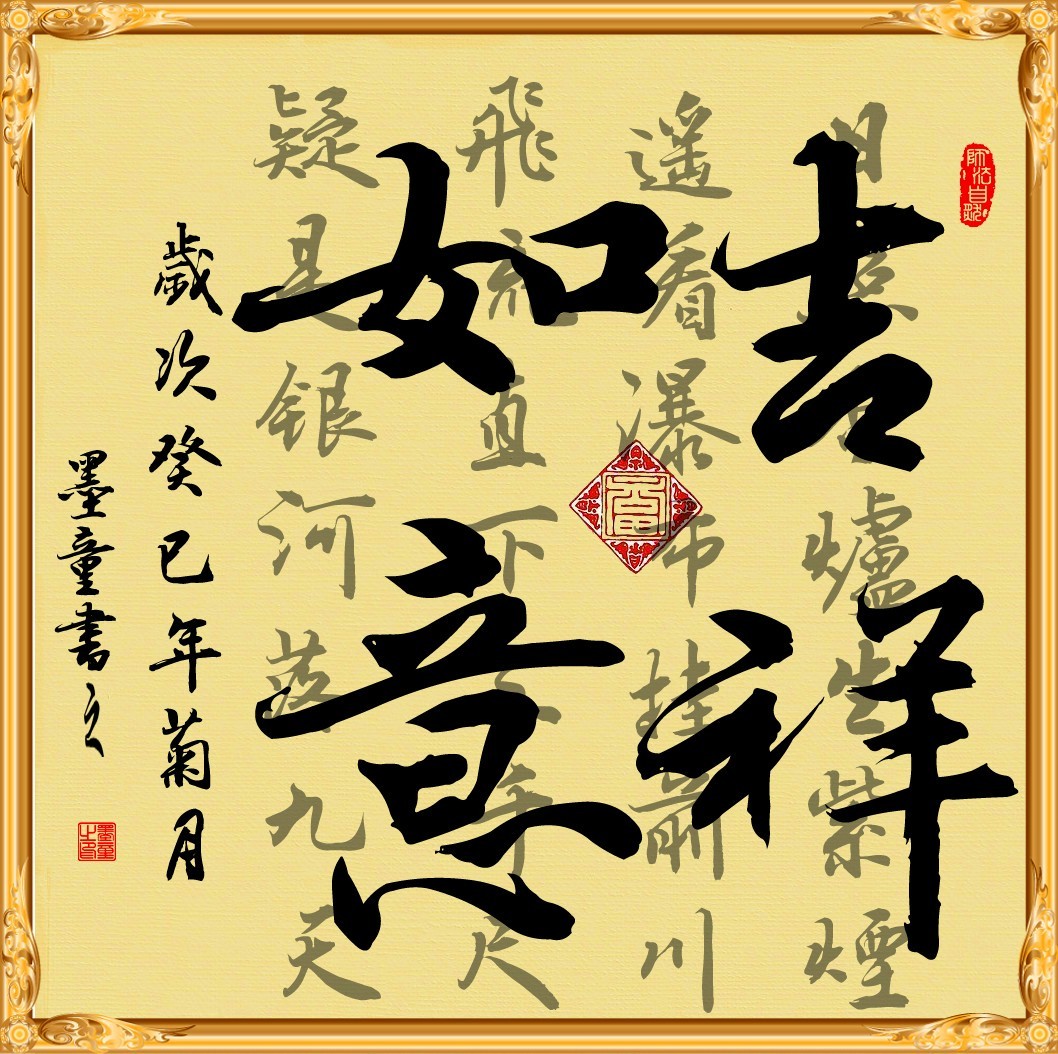 吉祥
如意
日照香爐生紫煙
遥看瀑布挂前川
飛流直下三千尺
疑是銀河落九天
歲次癸巳年菊月
墨童書之
师法自然
墨童之印